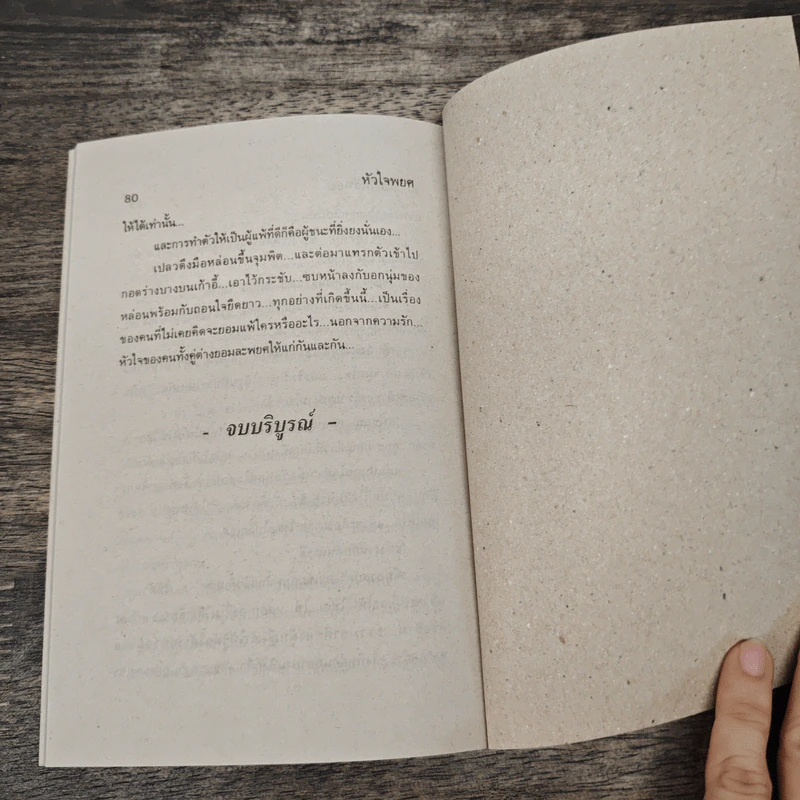 80
หัวใจพยศ
ให้ได้เท่านั้น...
และการทำตัวให้เป็นผู้แพ้ที่ดีก็คือผู้ชนะที่ยิ่งยงนั่นเอง...
เปลวดึงมือหล่อนขึ้นจุมพิต...และต่อมาแทรกตัวเข้าไป
กอดร่างบางบนเก้าอี้...เอาไว้กระชับ...ซบหน้าลงกับอกนุ่มของ
หล่อนพร้อมกับถอนใจยืดยาว...ทุกอย่างที่เกิดขึ้นนี้...เป็นเรื่อง
ของคนที่ไม่เคยคิดจะยอมแพ้ใครหรืออะไร...นอกจากความรัก...
หัวใจของคนทั้งคู่ต่างยอมละพยศให้แก่กันและกัน...
- จบบริบูรณ์ -